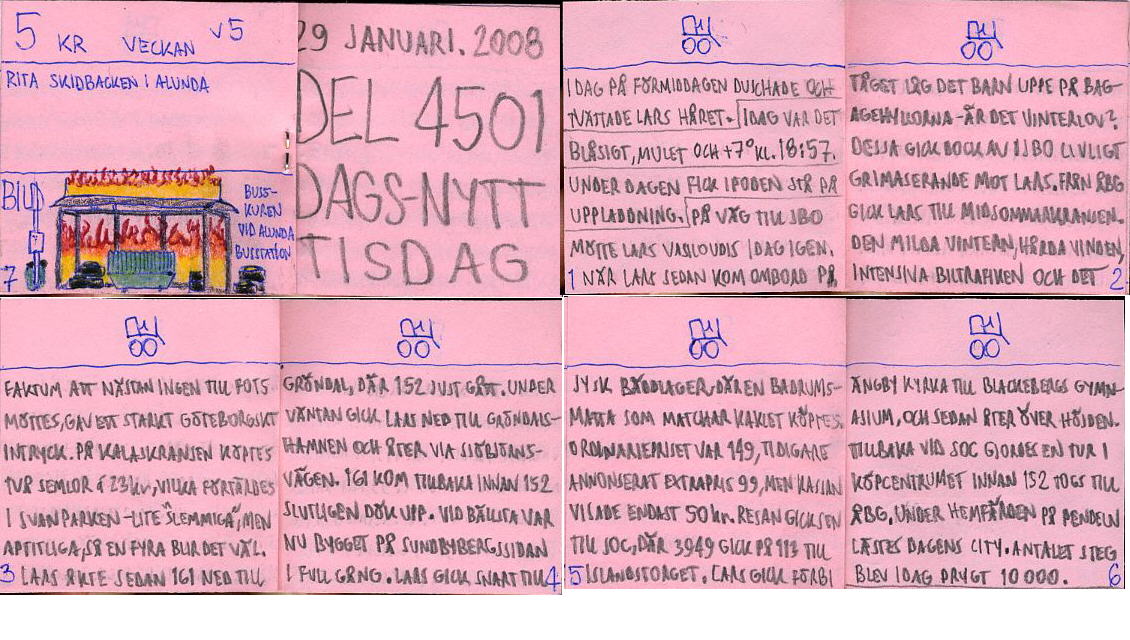 5 KR VECKAN V5
RITA SKIDBACKEN I ALUNDA
BILD
BUSS-
KUREN
VID ALUNDA
BUSSTATION
7
29 JANUARI. 2008
DEL 4501
DAGS-NYTT
TISDAG
IDAG PÅ FÖRMIDDAGEN DUSCHADE OCH
TVÄTTADE LARS HÅRET. IDAG VAR DET
BLÅSIGT, MULET OCH +7° KL. 18:57.
UNDER DAGEN FICK IPODEN STÅ PÅ
UPPLADDNING. PÅ VÄG TILL JBO
MÖTTE LARS VASILOUDIS IDAG IGEN.
1 NÄR LARS SEDAN KOM OMBORD PÅ
TÅGET LÅG DET BARN UPPE PÅ BAG-
AGEHYLLORNA - ÄR DET VINTERLOV?
DESSA GICK DOCK AV I JBO LIVLIGT
GRIMASERANDE MOT LARS. FRÅN ÅBG
GICK LARS TILL MIDSOMMARKRANSEN.
DEN MILDA VINTERN, HÅRDA VINDEN,
INTENSIVA BILTRAFIKEN OCH DET 2
FAKTUM ATT NÄSTAN INGEN TILL FOTS
MÖTTES, GAV ETT STARKT GÖTEBORGSKT
INTRYCK. PÅ KALASKRANSEN KÖPTES
TVÅ SEMLOR á 23 kr, VILKA FÖRTÄRDES
I SVANPARKEN - LITE "SLEMMIGA", MEN
APTITLIGA, SÅ EN FYRA BLIR DET VÄL.
3 LARS ÅKTE SEDAN 161 NED TILL
GRÖNDAL, DÄR 152 JUST GÅTT. UNDER
VÄNTAN GICK LARS NED TILL GRÖNDALS-
HAMNEN OCH ÅTER VIA SJÖBJÖRNS-
VÄGEN. 161 KOM TILLBAKA INNAN 152
SLUTLIGEN DÖK UPP. VID BÄLLSTA VAR
NU BYGGET PÅ SUNDBYBERGSSIDAN
I FULL GÅNG. LARS GICK SNART TILL 4
JYSK BÄDDLAGER, DÄR EN BADRUMS-
MATTA SOM MATCHAR KAKLET KÖPTES.
ORDINARIEPRISET VAR 149, TIDIGARE
ANNONSERAT EXTRAPRIS 99, MEN KASSAN
VISADE ENDAST 50 kr. RESAN GICK SEN
TILL SOC, DÄR 3949 GICK PÅ 113 TILL
5 ISLANDSTORGET. LARS GICK FÖRBI
ÄNGBY KYRKA TILL BLACKEBERGS GYMN-
ASIUM, OCH SEDAN ÅTER ÖVER HÖJDEN.
TILLBAKA VID SOC GJORDES EN TUR I
KÖPCENTRUMET INNAN 152 TOGS TILL
ÅBG. UNDER HEMFÄRDEN PÅ PENDELN
LÄSTES DAGENS CITY. ANTALET STEG
BLEV IDAG DRYGT 10 000. 6